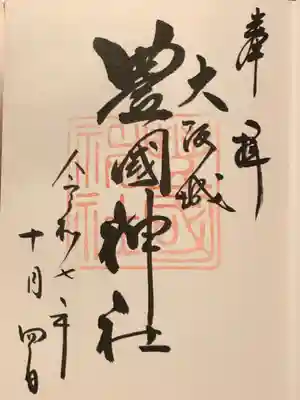 奉拝
大阪城
豊國神社
令和七年
十月四日